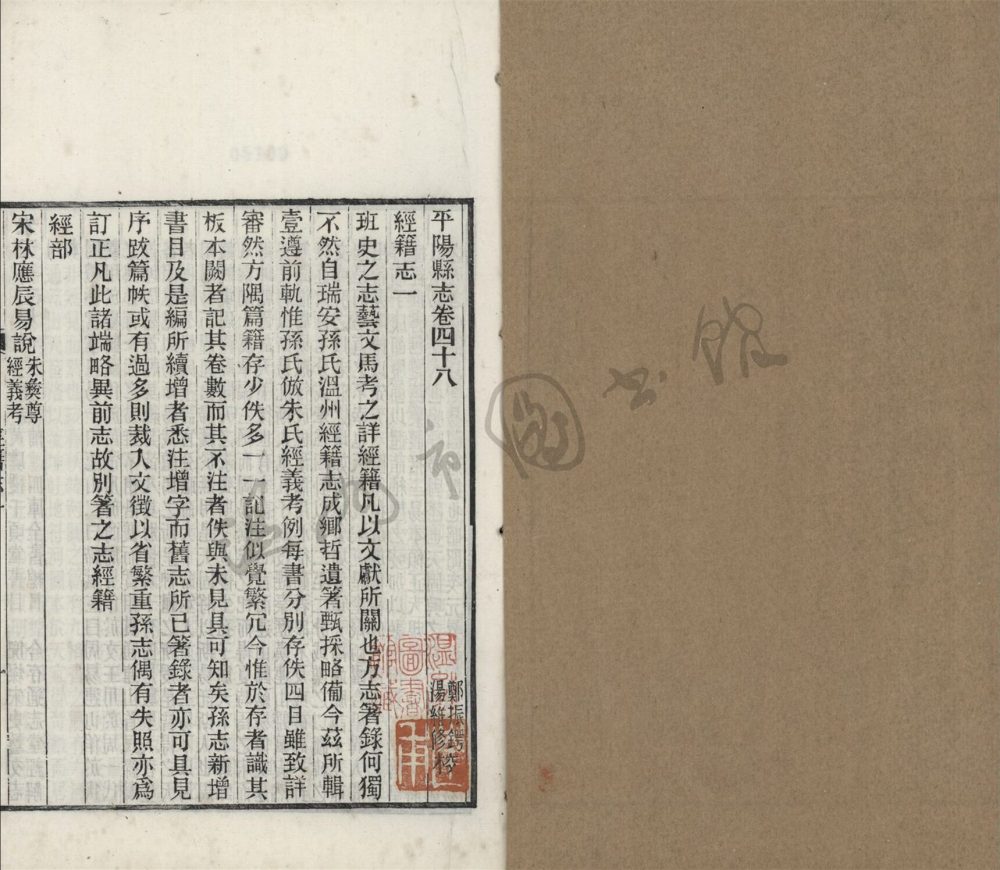 平陽縣志卷四十八
經籍志一
鄭振鍔
湯維修校
班史之志藝文馬考之詳經籍凡以文獻所關也方志著錄何獨
不然自瑞安孫氏溫州經籍志成鄉哲遺箸甄採略備今茲所輯
壹遵前軌惟孫氏倣朱氏經義考例每書分別存佚四目雖致詳
審然方隅篇籍存少佚多一一記注似覺繁冗今惟於存者識其
板本闕者記其卷數而其不注者佚與未見具可知矣孫志新增
書目及是編所續增者悉注增字而舊志所已箸錄者亦可具見
序跋篇帙或有過多則裁入文徵以省繁重孫志偶有失照亦爲
訂正凡此諸端略異前志故別箸之志經籍
經部
宋林應辰易說朱彝尊
經義考
溫州市圖書館